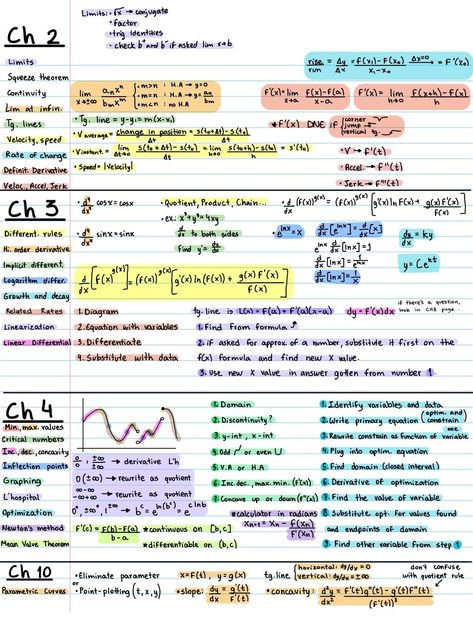 Ch 2
Limits: • √x → conjugate
• Factor
• trig identities
• check b⁺ and b⁻ if asked lim x→b
Limits
Squeeze theorem
Continuity
Lim at infin.
Tg. lines
Velocity, speed
Rate of change
Definit. Derivative
Veloc., Accel, Jerk
rise/run = Δy/Δx = f(x₁) - f(x₀) / x₁ - x₀ Δx→0 = f'(x₀)
lim x→±∞ aₙxⁿ / bₘxᵐ
• m>n : H.A → y=0
• m=n : H.A → y= an/bm
• m<n : no H.A
f'(x) = lim x→a f(x) - f(a) / x - a
f'(x) = lim h→0 f(x+h) - f(x) / h
• Tg. line = y-y₁ = m(x-x₁)
* f'(x) DNE if corner
jump
vertical tg.
• V average = change in position / Δt = s(t₀+Δt) - s(t₀) / Δt
• V instant. = lim Δt→0 s(t₀+Δt) - s(t₀) / Δt = lim h→0 s(t₀+h) - s(t₀) / h = s'(t₀)
• Speed = |velocity|
• V → f'(t)
• Accel. → f''(t)
• Jerk → f'''(t)
Ch 3
Different. rules
Hi. order derivative
Implicit different.
Logarithm differ.
Growth and decay
Related Rates
Linearization
Linear Differential
• d⁴/dx⁴ cosx = cosx
• d⁴/dx⁴ sinx = sinx
• Quotient, Product, Chain...
• ex: x³+y³ = 4xy
d/dx to both sides
Find y' = dy/dx
• d/dx (f(x))^g(x) = (f(x))^g(x) [g'(x) ln f(x) + g(x) f'(x) / f(x)]
d/dx [f(x)^g(x)] = (f(x))^g(x) [g'(x) ln(f(x)) + g(x) f'(x) / f(x)]
• e^lnx = x
d/dx [e^lnx] = d/dx [x]
e^lnx d/dx [lnx] = 1
d/dx [lnx] = 1/e^lnx
d/dx [lnx] = 1/x
dy/dx = ky
y = Ce^kt
1. Diagram
2. Equation with variables
3. Differentiate
4. Substitute with data
tg. line is L(x) = f(a) + f'(a)(x-a)
dy = f'(x)dx
if there's a question, look in Ch3 page...
1. Find From formula
2. if asked for approx of a number, substitute it first on the
f(x) formula and find new x value.
3. Use new x value in answer gotten from number 1.
Ch 4
Min, max. values
Critical numbers
Inc, dec, concavity
Inflection points
Graphing
L'hospital
Optimization
Newton's method
Mean Value Theorem
0/0, ±∞/±∞ → derivative L'h
0(±∞) → rewrite as quotient
∞-∞ → rewrite as quotient
f'(c) = f(b)-f(a) / b-a
*continuous on [b,c]
*differentiable on (b,c)
1. Domain
2. Discontinuity?
3. y-int, x-int
4. Odd / or even U
5. V.A or H.A
6. Inc dec, max. min. (f'(x))
7. Concave up or down (f''(x))
*calculator in radians
Xn+1 = Xn - f(Xn) / f'(Xn)
1. Identify variables and data
2. Write primary equation (optim.) and constrain one
3. Rewrite constrain as function of variable
4. Plug into optim. equation
5. Find domain (closed interval)
6. Derivative of optimization
7. Find the value of variable
8. Substitute opt. for values found
and endpoints of domain
9. Find other variable from step 1
Ch 10
Parametric Curves
• Eliminate parameter
or
• Point-plotting (t, x, y)
x=f(t), y=g(x)
• slope: dy/dx = g'(t) / f'(t)
tg. line
horizontal: dy/dx = 0
vertical: dy/dx = ±∞
don't confuse
with quotient rule
• concavity: d²y/dx² = f'(t)g''(t) - g'(t)f''(t) / (f'(t))³